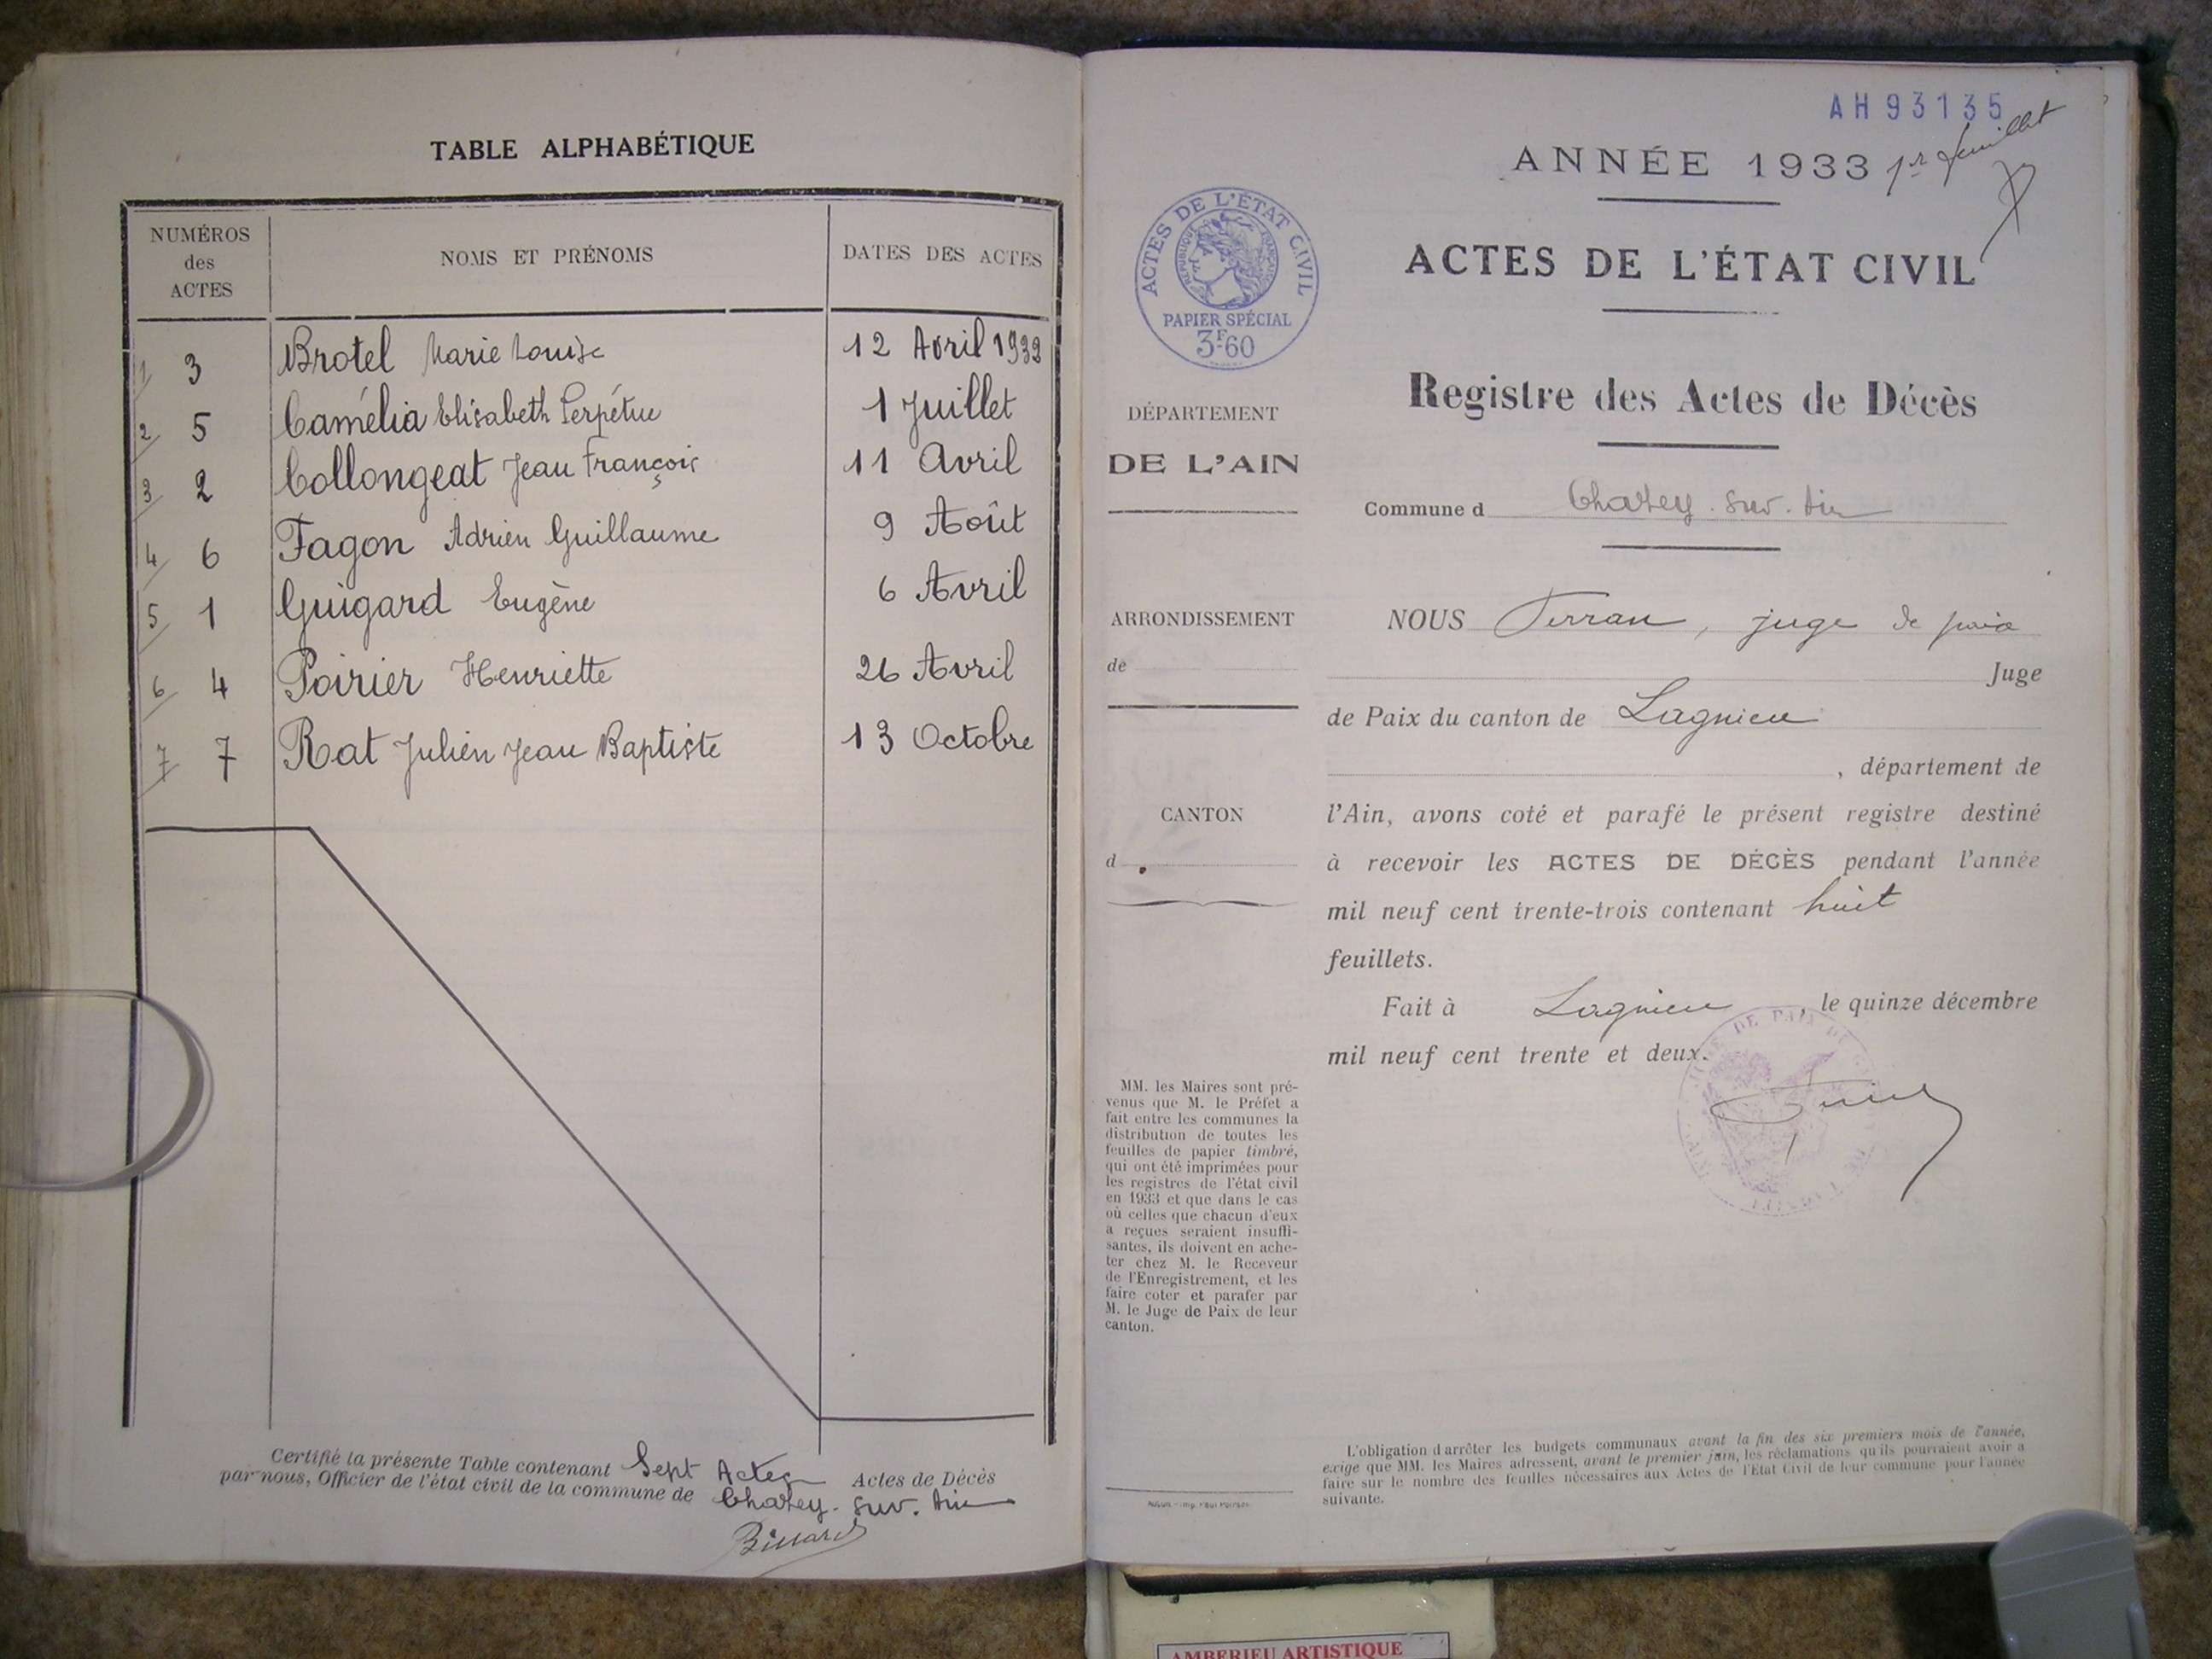 TABLE ALPHABÉTIQUE
NUMÉROS
des
ACTES
NOMS ET PRÉNOMS
DATES DES ACTES
1/ 3 Brotel Marie Louise 12 Avril 1932
2/ 5 Camélia Elisabeth Perpétue 1 Juillet
3/ 2 Collongeat Jean François 11 Avril
4/ 6 Fagon Adrien Guillaume 9 Août
5/ 1 Guigard Eugène 6 Avril
6/ 4 Poirier Henriette 26 Avril
7/ 7 Rat Julien Jean Baptiste 13 Octobre
Certifié la présente Table contenant Sept Actes Actes de Décès
par nous, Officier de l'état civil de la commune de Charey. sur. Ain
AH93135
ANNÉE 1933 1er feuillet
ACTES DE L'ÉTAT CIVIL
RÉPUBLIQUE FRANÇAISE
PAPIER SPÉCIAL
3F60
ACTES DE L'ÉTAT CIVIL
Registre des Actes de Décès
DÉPARTEMENT
DE L'AIN
Commune d Charey. sur. Ain
ARRONDISSEMENT
de
NOUS Ferran, juge de paix
Juge
de Paix du canton de Lagnieu
, département de
CANTON
d
l'Ain, avons coté et parafé le présent registre destiné
à recevoir les ACTES DE DÉCÈS pendant l'année
mil neuf cent trente-trois contenant huit
feuillets.
Fait à Lagnieu, le quinze décembre
mil neuf cent trente et deux.
MM. les Maires sont pré-
venus que M. le Préfet a
fait entre les communes la
distribution de toutes les
feuilles de papier timbré,
qui ont été imprimées pour
les registres de l'état civil
en 1933 et que dans le cas
où celles que chacun d'eux
a reçues seraient insuffi-
santes, ils doivent en ache-
ter chez M. le Receveur
de l'Enregistrement, et les
faire coter et parafer par
M. le Juge de Paix de leur
canton.
L'obligation d'arrêter les budgets communaux avant la fin des six premiers mois de l'année,
exige que MM. les Maires adressent, avant le premier juin, les réclamations qu'ils pourraient avoir à
faire sur le nombre des feuilles nécessaires aux Actes de l'Etat Civil de leur commune pour l'année
suivante.
AMBERIEU ARTISTIQUE